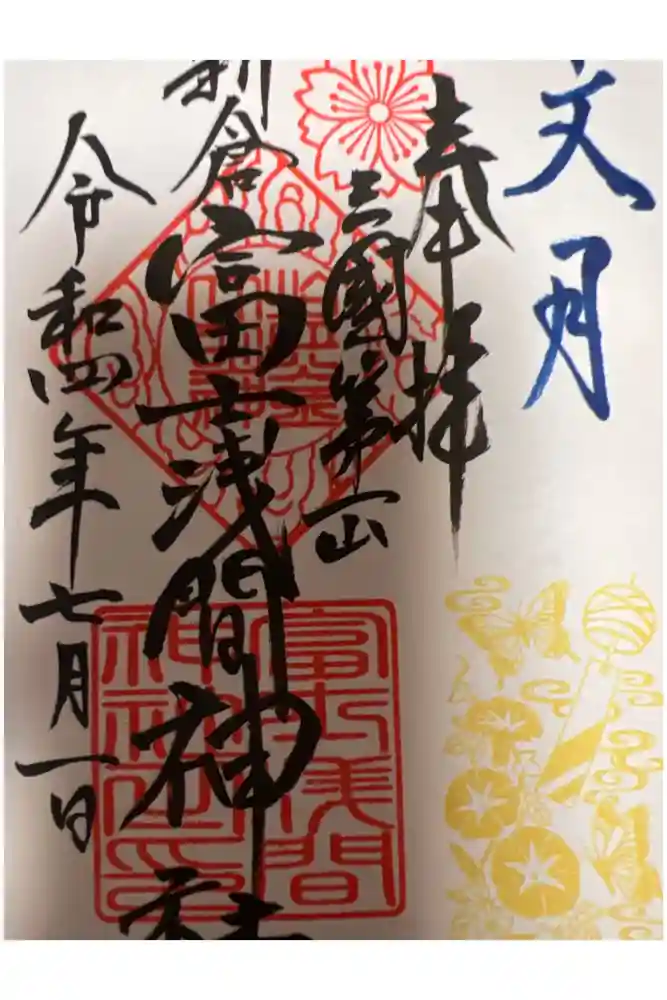 文月
奉拝
三國第一山
新倉富士浅間神社
令和四年七月一日
富士浅間
神社之印